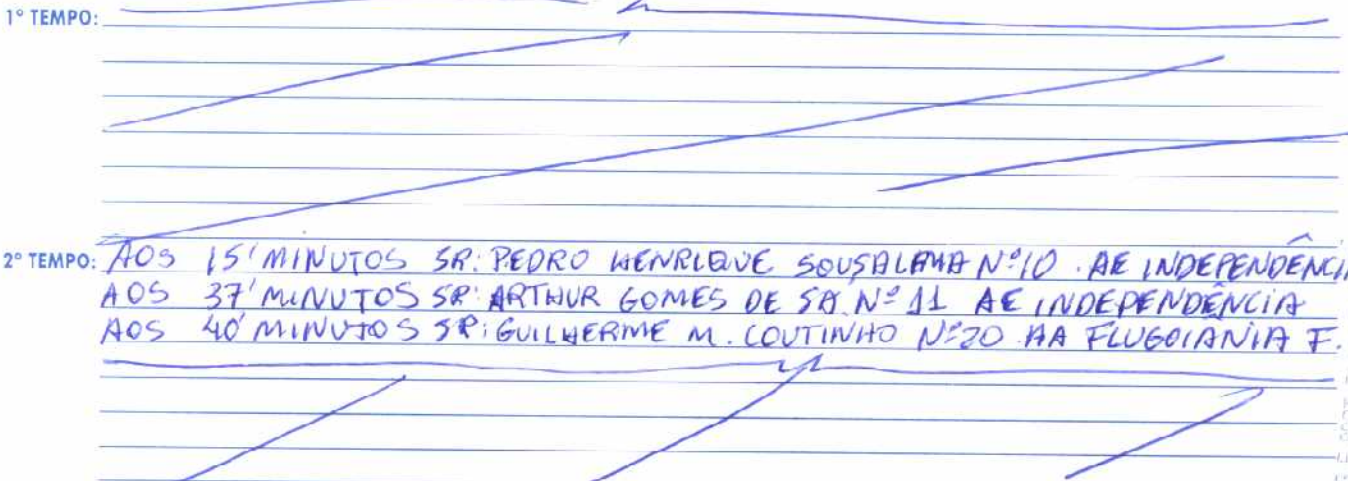 1º TEMPO:
2º TEMPO: AOS 15' MINUTOS SR: PEDRO HENRIQUE Nº 10 . AE INDEPENDÊNCIA
AOS 37' MINUTOS SR: ARTHUR GOMES DE SÁ Nº 11 AE INDEPENDÊNCIA
AOS 40' MINUTOS SR: GUILHERME M. COUTINHO Nº 20 AA FLUGOIANIA F.